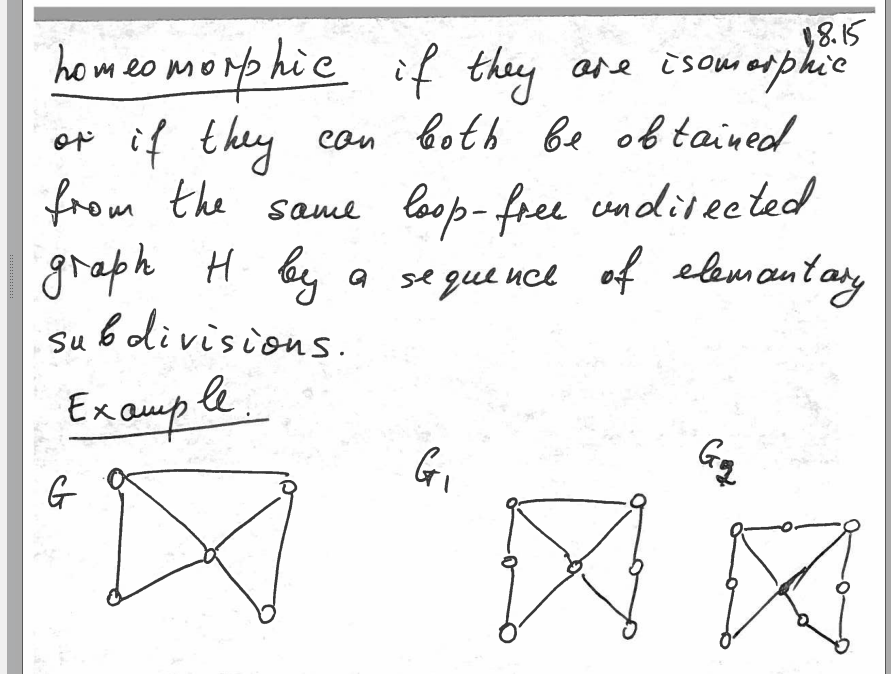 18.15
homeomorphic if they are isomorphic
or if they can both be obtained
from the same loop-free undirected
graph H by a sequence of elemantary
subdivisions.
Example.
G G1 G2